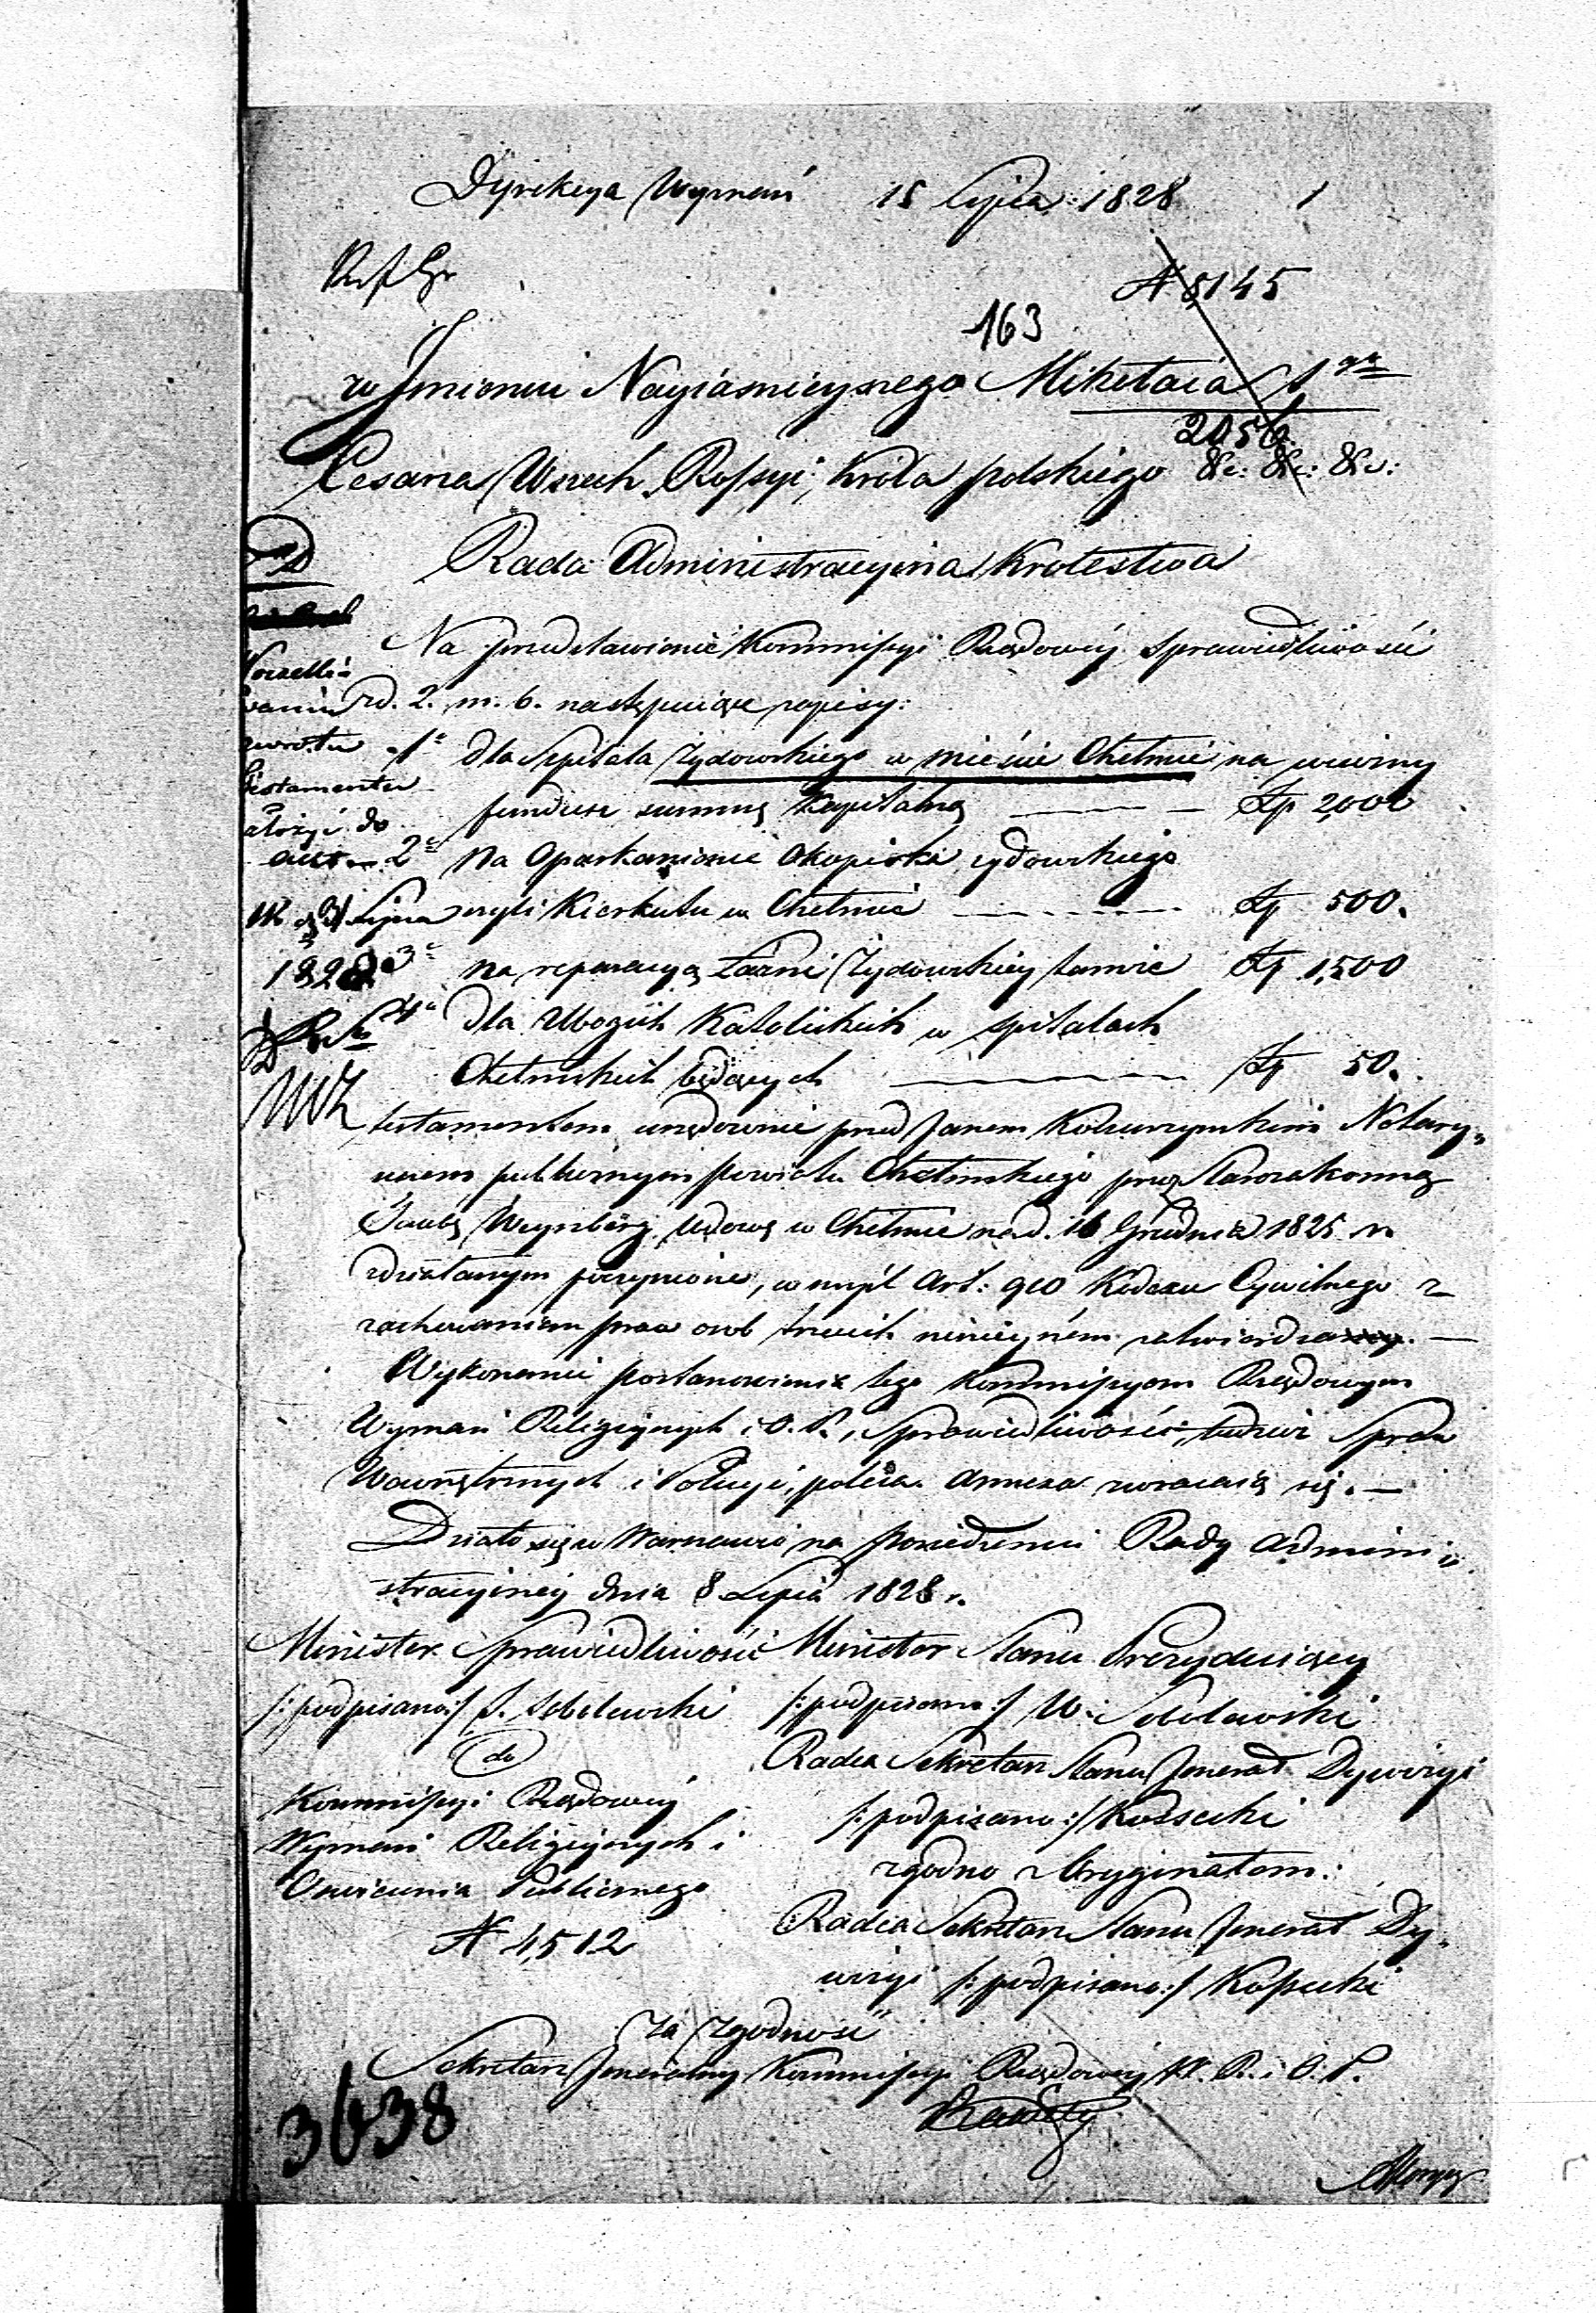 Dyrekcya Wyznań 15 Lipca 1828 1
N 8145
163
w Jmieniu Nayiaśnieyszego Mikołaia I go
2056
Cesarza Wszech Rossyi, Króla polskiego &c: &c: &c:
Rada Administracyina Krolestwa
Na przedstawienie Kommissyi Rządowéy Sprawiedliwości
z d. 2. m. b. następuiące zapisy:
1e dla Szpitala Żydowskiego w mieście Chełmie na wieczny
fundusz summę kapitalną — Zp 2,000
2e na oparkanienie okopiska żydowskiego
czyli Kierkutu w Chełmie — Zp 500.
3e na reparacyą Łaźni Żydowskiey tamże Zp 1,500
4e dla Ubogich Katolickich w szpitalach
Chełmskich będących — Zp 50.
testamentem urzędownie przed Janem Notary„
uszem publicznym powiatu Chełmskiego przez Starozakonną
Weynberg, wdowę w Chełmie na d. 16 Grudnia 1825 r.
zdziałanym poczynione, w myśl Art: 910 Kodexu Cywilnego z
zachowaniem praw osob trzecich ninieyszém zatwierdza
Wykonanie postanowienia tego Kommissyom Rządowym
Wyznań Religiynych i O. P., Sprawiedliwości, tudzież Spraw
Wewnętrznych i Policyi, poleca. Annexa zwracaią się. —
Działo się w Warszawie na posiedzeniu Rady Admini„
stracyiney dnia 8 Lipca 1828 r.
Minister Sprawiedliwości Minister Stanu Prezyduiący
/: podpisano :/ Sobolewski /: podpisano :/ W. Sobolewski
do Radca Sekretarz Stanu Jenerał Dywizyi
Kommissyi Rządowéy /: podpisano :/ Kossecki
Wyznań Religiynych i zgodno z Oryginałem:
Oświecenia Publicznego Radca Sekretarz Stanu Jenerał Dy„
N 4,512 wizyi /: podpisano :/ Kossecki
Za Zgodność
Sekretarz Jeneralny Kommissyi Rządowéy W. R. i O. P.
3638
testamentu
do
akt
Lipca
1828